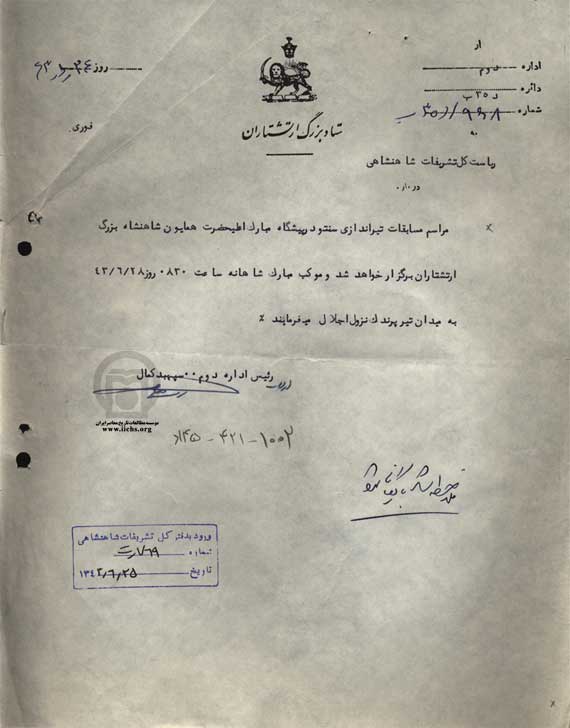 ستاد بزرگ ارتشتاران
از
اداره دوم
دائره د ۳۵ ب
شماره
به
روز
فوری
ریاست کل تشریفات شاهنشاهی
دربار
٪ مراسم مسابقات تیراندازی سنتو در پیشگاه مبارک اعلیحضرت همایون شاهنشاه بزرگ
ارتشتاران برگزار خواهد شد و موکب مبارک شاهانه ساعت ۰۸۳۰ روز ۴۳/۶/۲۸
به میدان تیر پرندک نزول اجلال میفرمایند ٪
رئیس اداره دوم ۰۰ سپهبد کمال
موسسه مطالعات تاریخ معاصر ایران
www.iichs.org
۱۰۰۲-۴۲۱-۴۵
ورود بدفتر کل تشریفات شاهنشاهی
شماره
تاریخ ۱۳۴۳/۶/۲۵